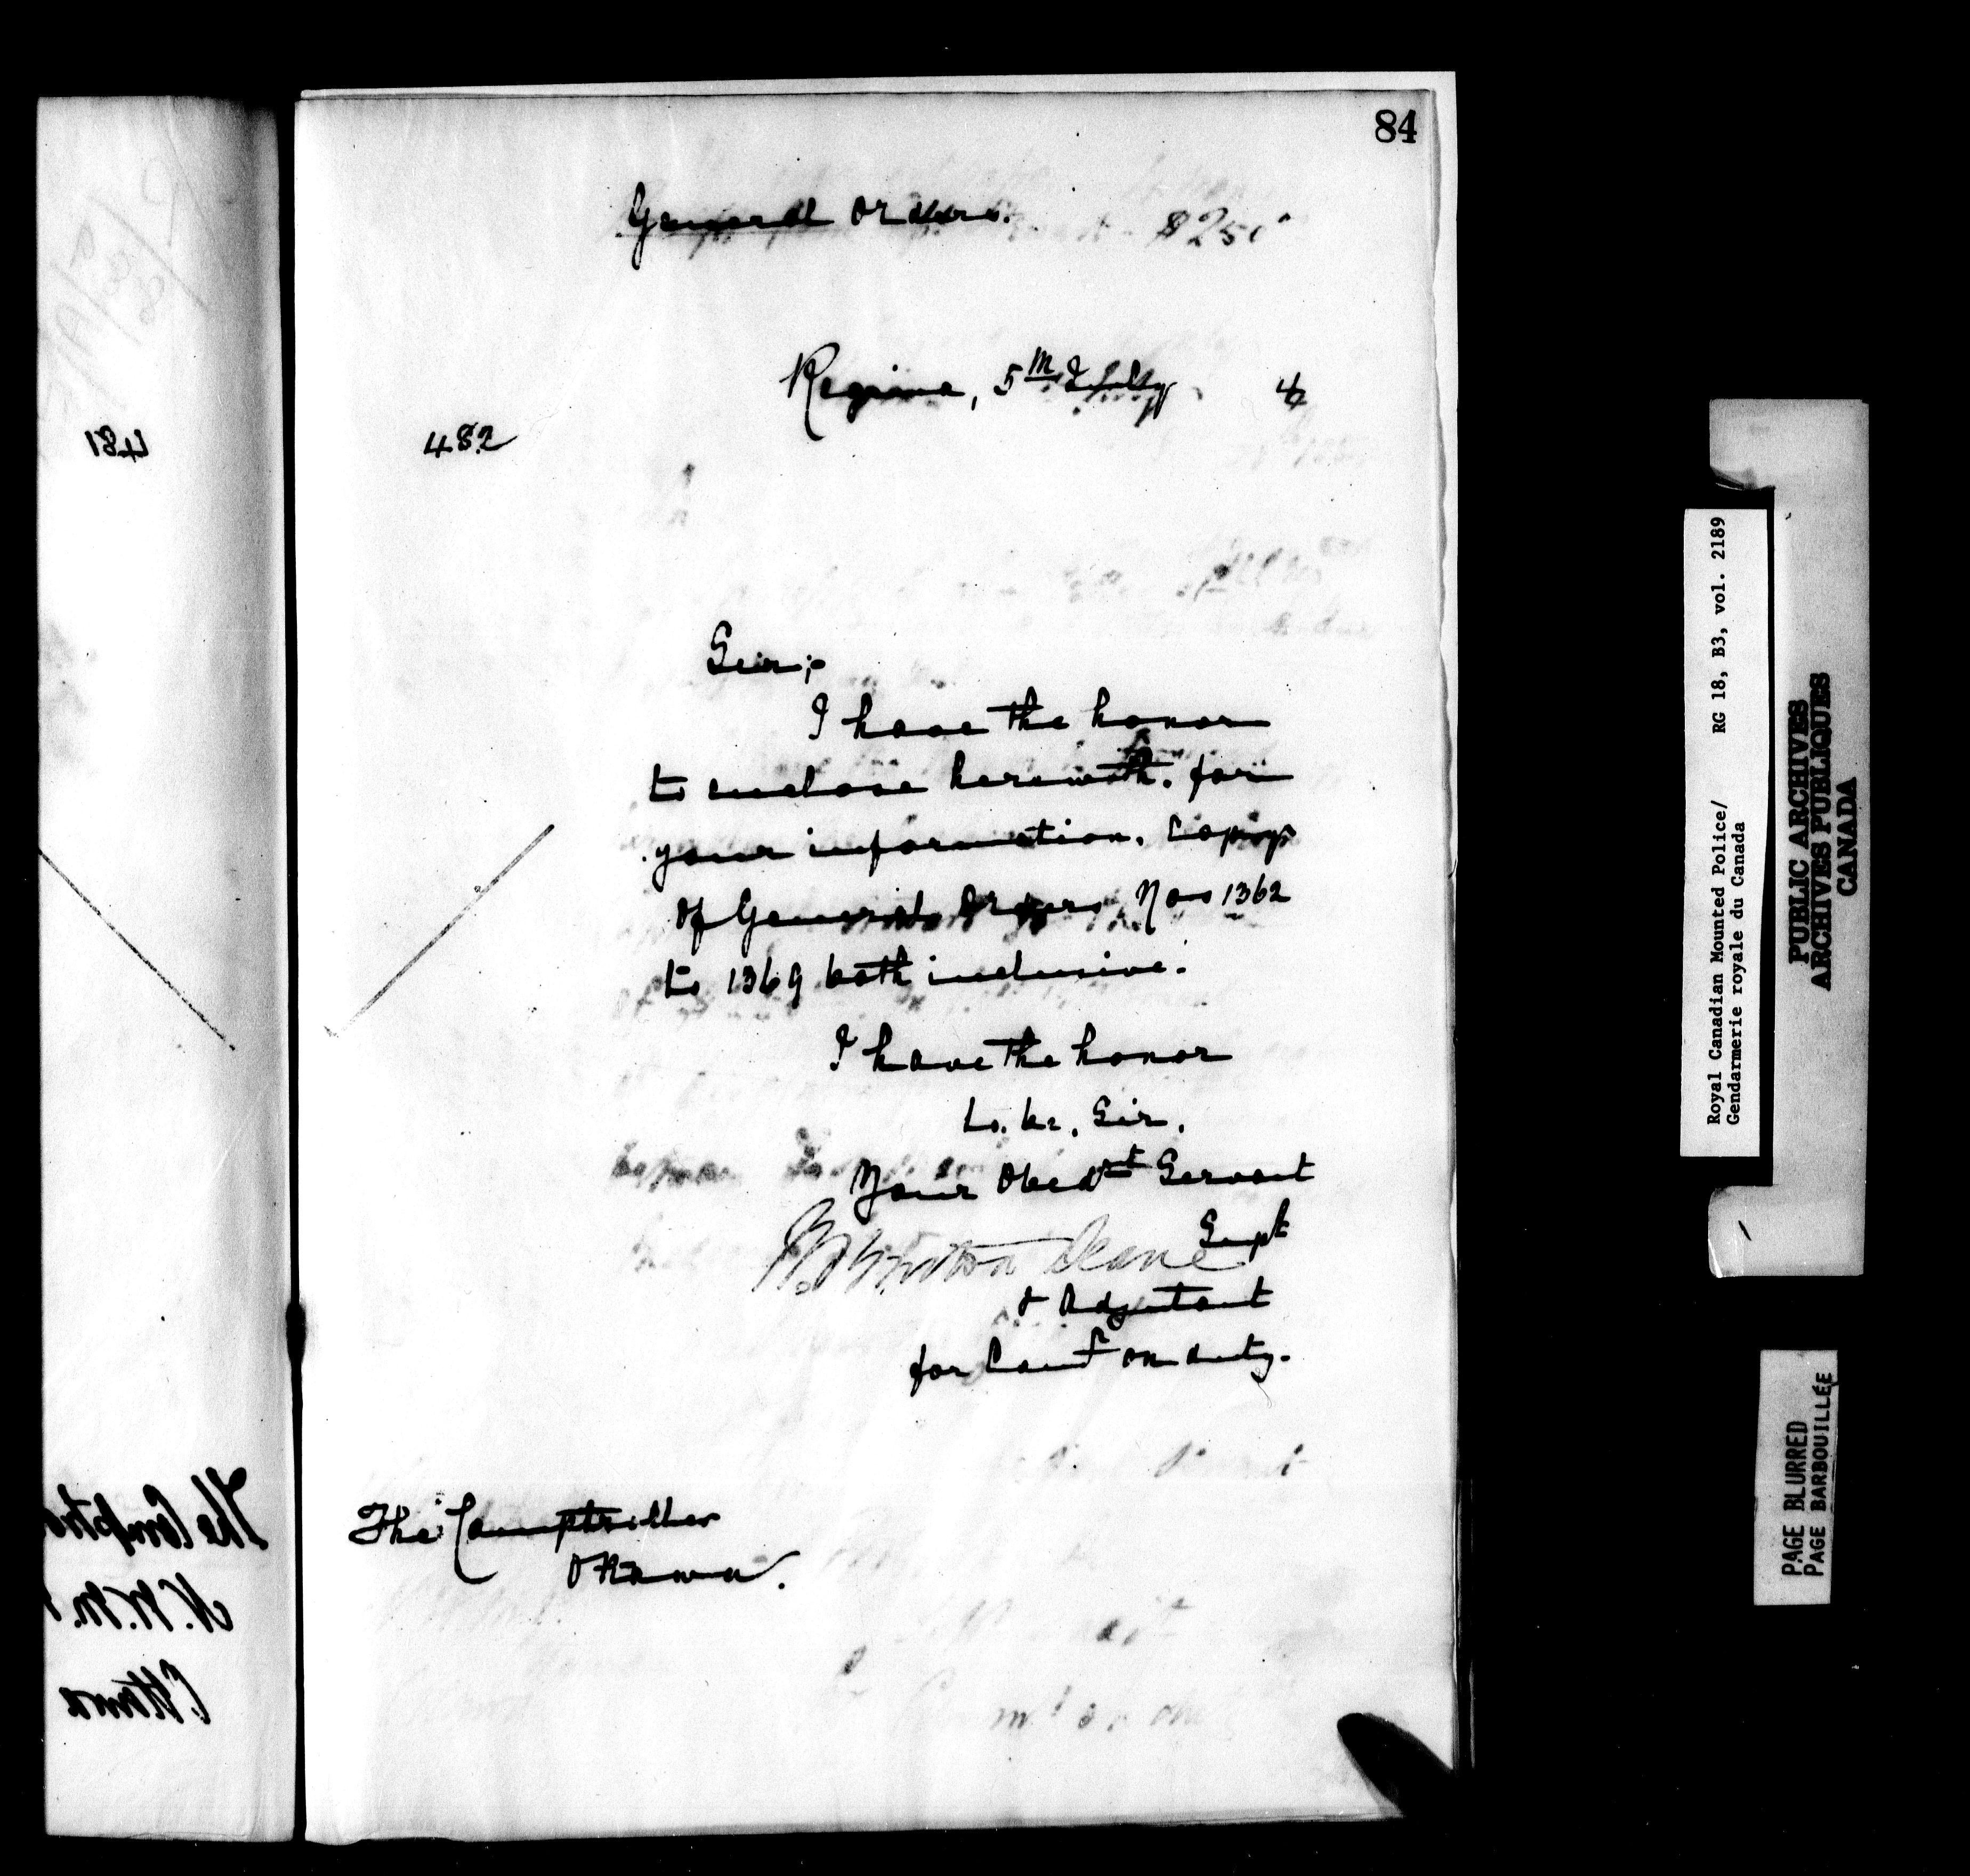 84
General Orders.
$250
Regina, 5th July 4
482
Sir;-
I have the honor
to enclose herewith. for
your information. Copy
of General Orders Nos 1362
to 1369 both inclusive.
I have the honor
to. be. Sir.
Your Obedt Servant
R Burton Deane Supt
& Adjutant
for Comr on duty.
The Comptroller
Ottawa.
481
The Comptro
N.W.M.P
Ottawa
Royal Canadian Mounted Police/ RG 18, B3, vol. 2189
Gendarmerie royale du Canada
PUBLIC ARCHIVES
ARCHIVES PUBLIQUES
CANADA
PAGE BLURRED
PAGE BARBOUILLÉE